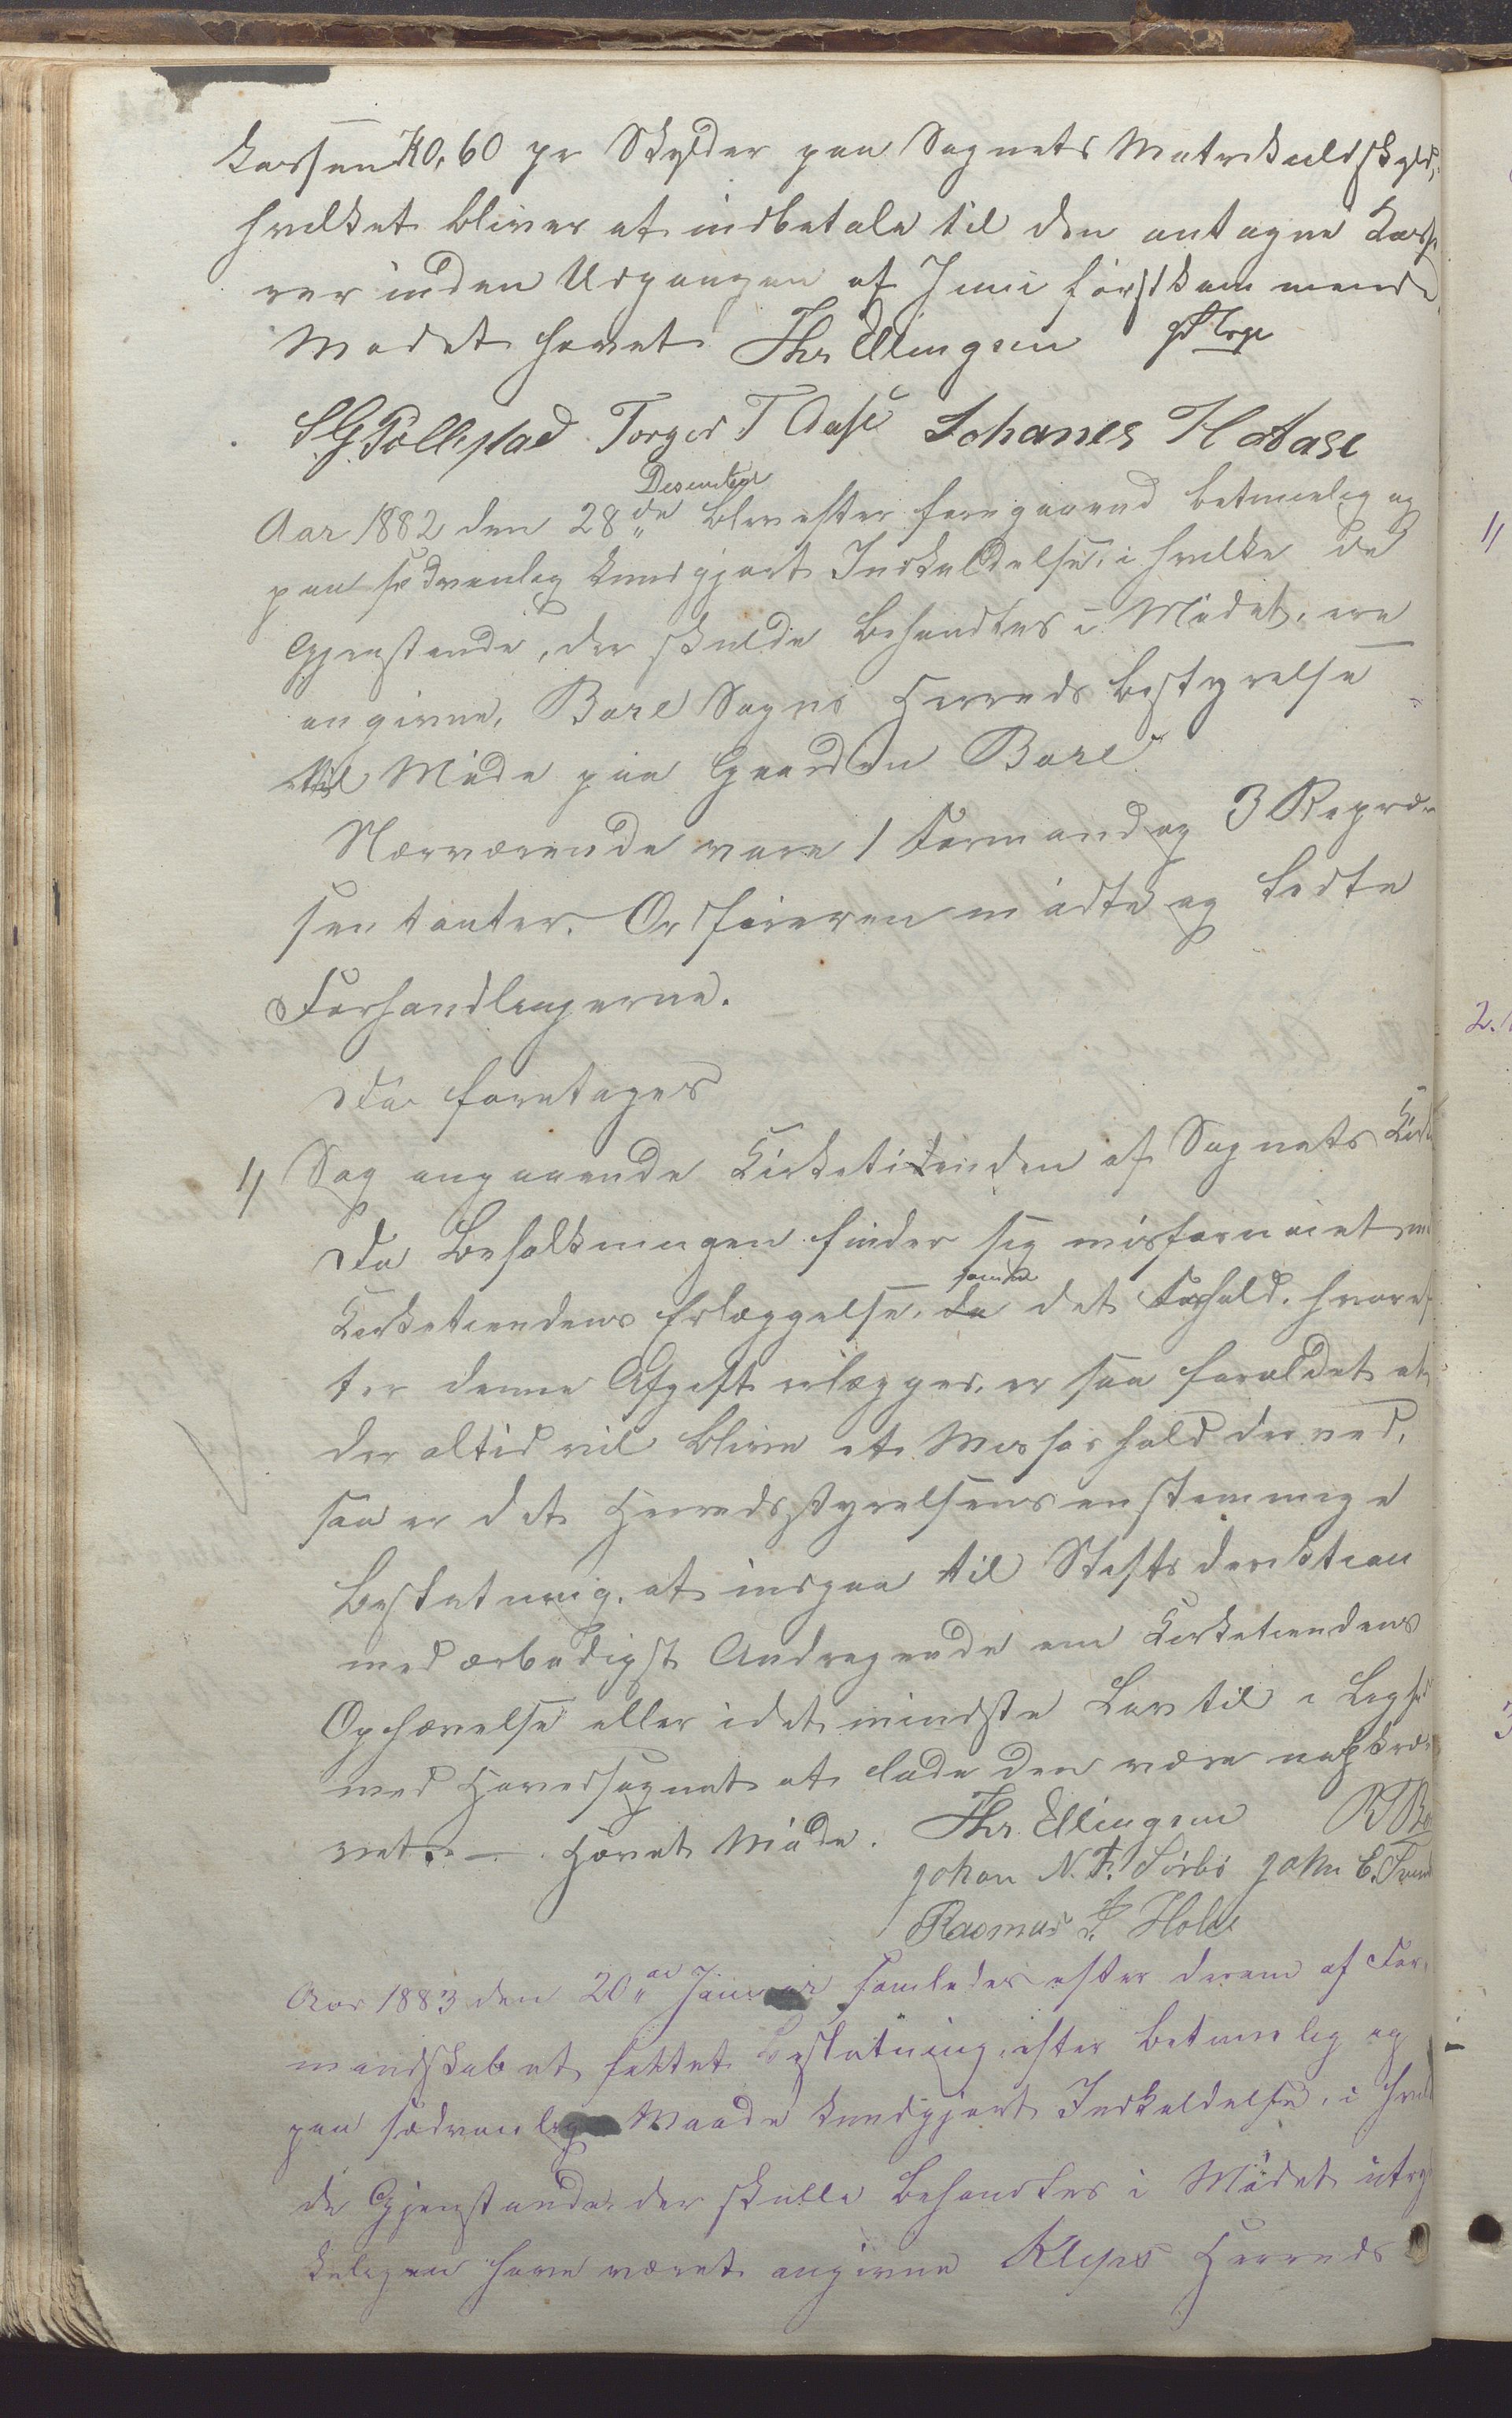 Kassen K0,60 pr Skylder paa Sognets Matrikuldskyld,
hvilket bliver at indbetale til den antagne Kasse
rer inden Udgangen af Juni førstkommende
Mødet hævet Thr Ellingsen
S.G. Pollestad Torger T Aase Johanes H Aase
Desember
Aar 1882 den 28de blev efter foregaaend betimelig og
paa sedvanlig kundgjort Indkaldelse, i hvilke de
Gjenstande, der skulde behandles i Mødet, ere
angivne, Bore Sogns Herreds bestyrelse
til Møde paa Gaarden Bore
Nærværende vare 1 Formand og 3 Repræ-
sentanter. Ordføreren mødte og ledte
Forhandlingerne.
Da foretoges
1/ Sag angaaende Kirketienden af Sognets Kirke
Da Befolkningen finder sig misfornøiet med
samt
Kirketiendens Erlæggelse, da det Forhold, hvoref
ter denne Afgift erlægges, er saa forældet at
der altid vil blive et Misforhold derved,
saa er det Herredsstyrelsens enstemmige
Beslutning, at indgaa til Stiftsdirektion
med ærbødigst Andragende om Kirketiendens
Ophævelse eller idet mindste Lov til i Lighed
med Hovedsognet at lade den være uafkræ-
vet. — Hævet Møde. Thr. Ellingsen
Johan N. F. Sørbø John E.
Rasmus Hole
Aar 1883 den 20de Januar samledes efter derom af For-
mandskabet fattet Beslutning, efter betimelig og
paa sædvanlig Maade kundgjort Indkaldelse, i hvil
de Gjenstande der skulle behandles i Mødet utryk
keligen have været angivne Kleps Herreds